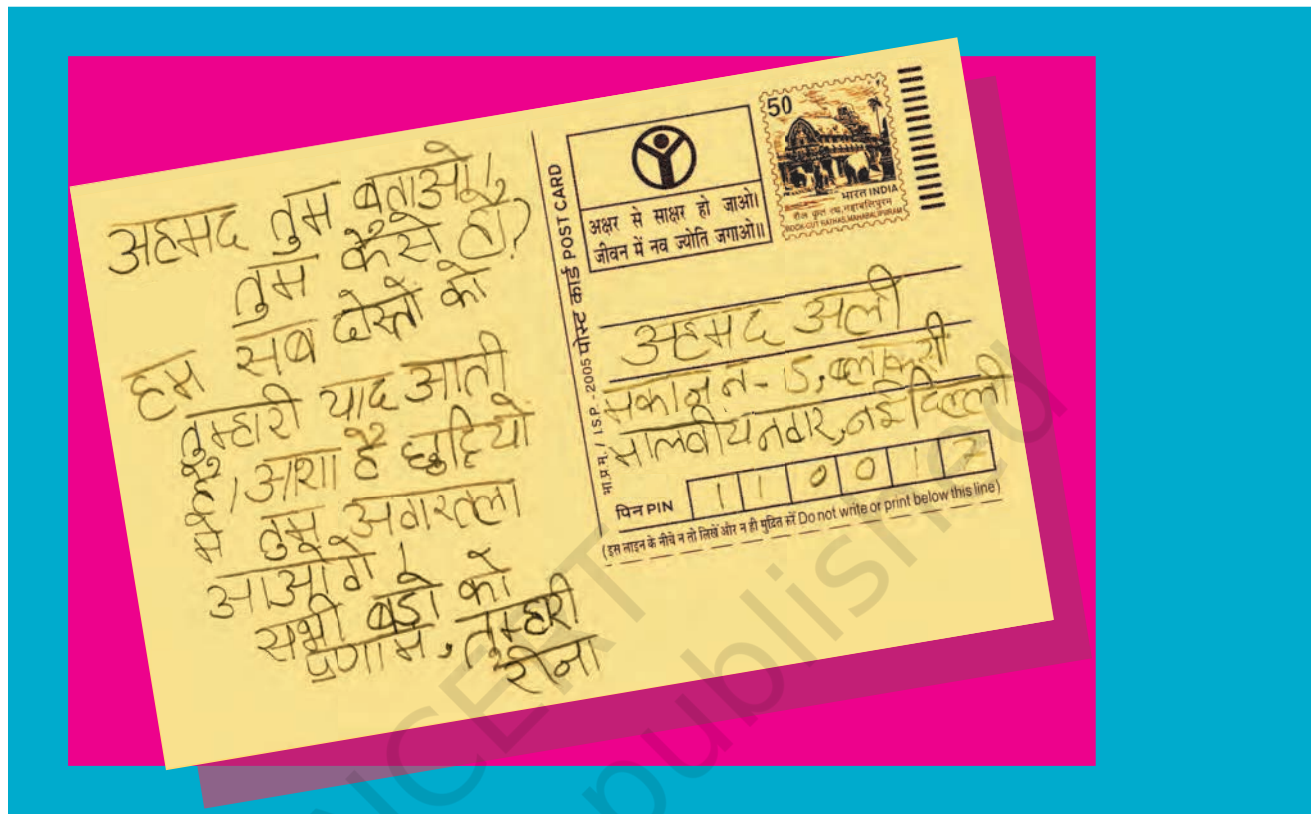 अहमद तुम बताओ,
तुम कैसे हो?
हम सब दोस्तों को
तुम्हारी याद आती
है। आशा है छुट्टियो
में तुम अगरतला
आओगे।
सभी बड़ो को
प्रणाम, तुम्हारी
रीना
भा.प्र.मु. / I.S.P. -2005 पोस्ट कार्ड POST CARD
अक्षर से साक्षर हो जाओ।
जीवन में नव ज्योति जगाओ॥
50
भारत INDIA
शैल कृत रथ, महाबलिपुरम
ROCK-CUT RATHAS, MAHABALIPURAM
अहमद अली
मकान न- 15, ब्लाक सी
मालवीय नगर, नई दिल्ली
पिन PIN 110017
(इस लाइन के नीचे न तो लिखें और न ही मुद्रित करें Do not write or print below this line)
NCERT
published